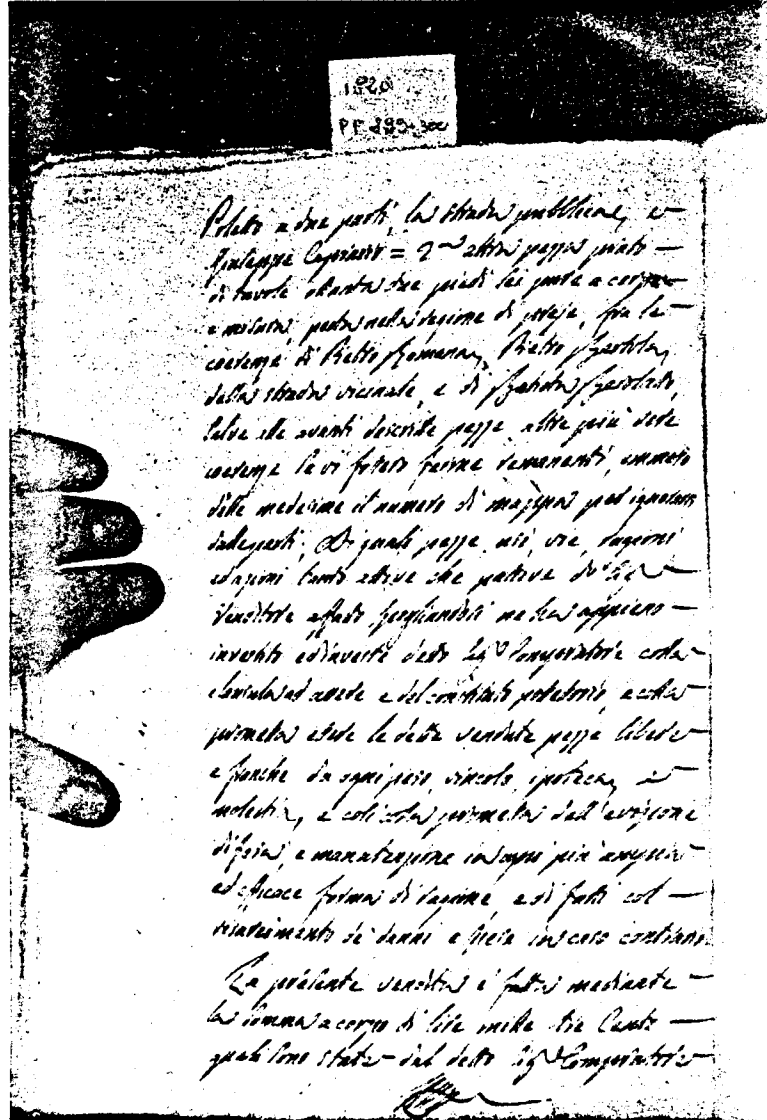 1820
PP 299-300
Poletto a due parti, la strada pubblica, e
Giuseppe = 2.a altra pezza prato
di tavole ottanta due piedi sei pure a corpo
e misura, posta nella regione di, fra le
coerenze di Pietro, Pietro
della strada vicinale, e di
salve alle avanti descritte pezze altre più vere
coerenze se vi fossero ferme rimanenti, ommesso
delle medesime il numero di mappa per ignorarsi
dalle parti; Di quali pezze, usi, vie, ragioni
ed azioni tanto attive che passive d.o Sig.r
Venditore affatto spogliandosi ne ha appieno
investito ed investe detto Sig.r Compratore colla
clausola ed del constituto possessorio, e colla
promessa essere le dette vendute pezze libere
e franche da ogni peso, vincolo, ipoteca, e
molestia, e colla promessa dell'evizione
difesa, e manutenzione in ogni più ampia
ed efficace forma di ragione, e di fatti col
risarcimento de' danni e spese in caso contrario.
La presente vendita è fatta mediante
la somma a corpo di lire mille tre Cento
quali sono state dal detto Sig.r Compratore